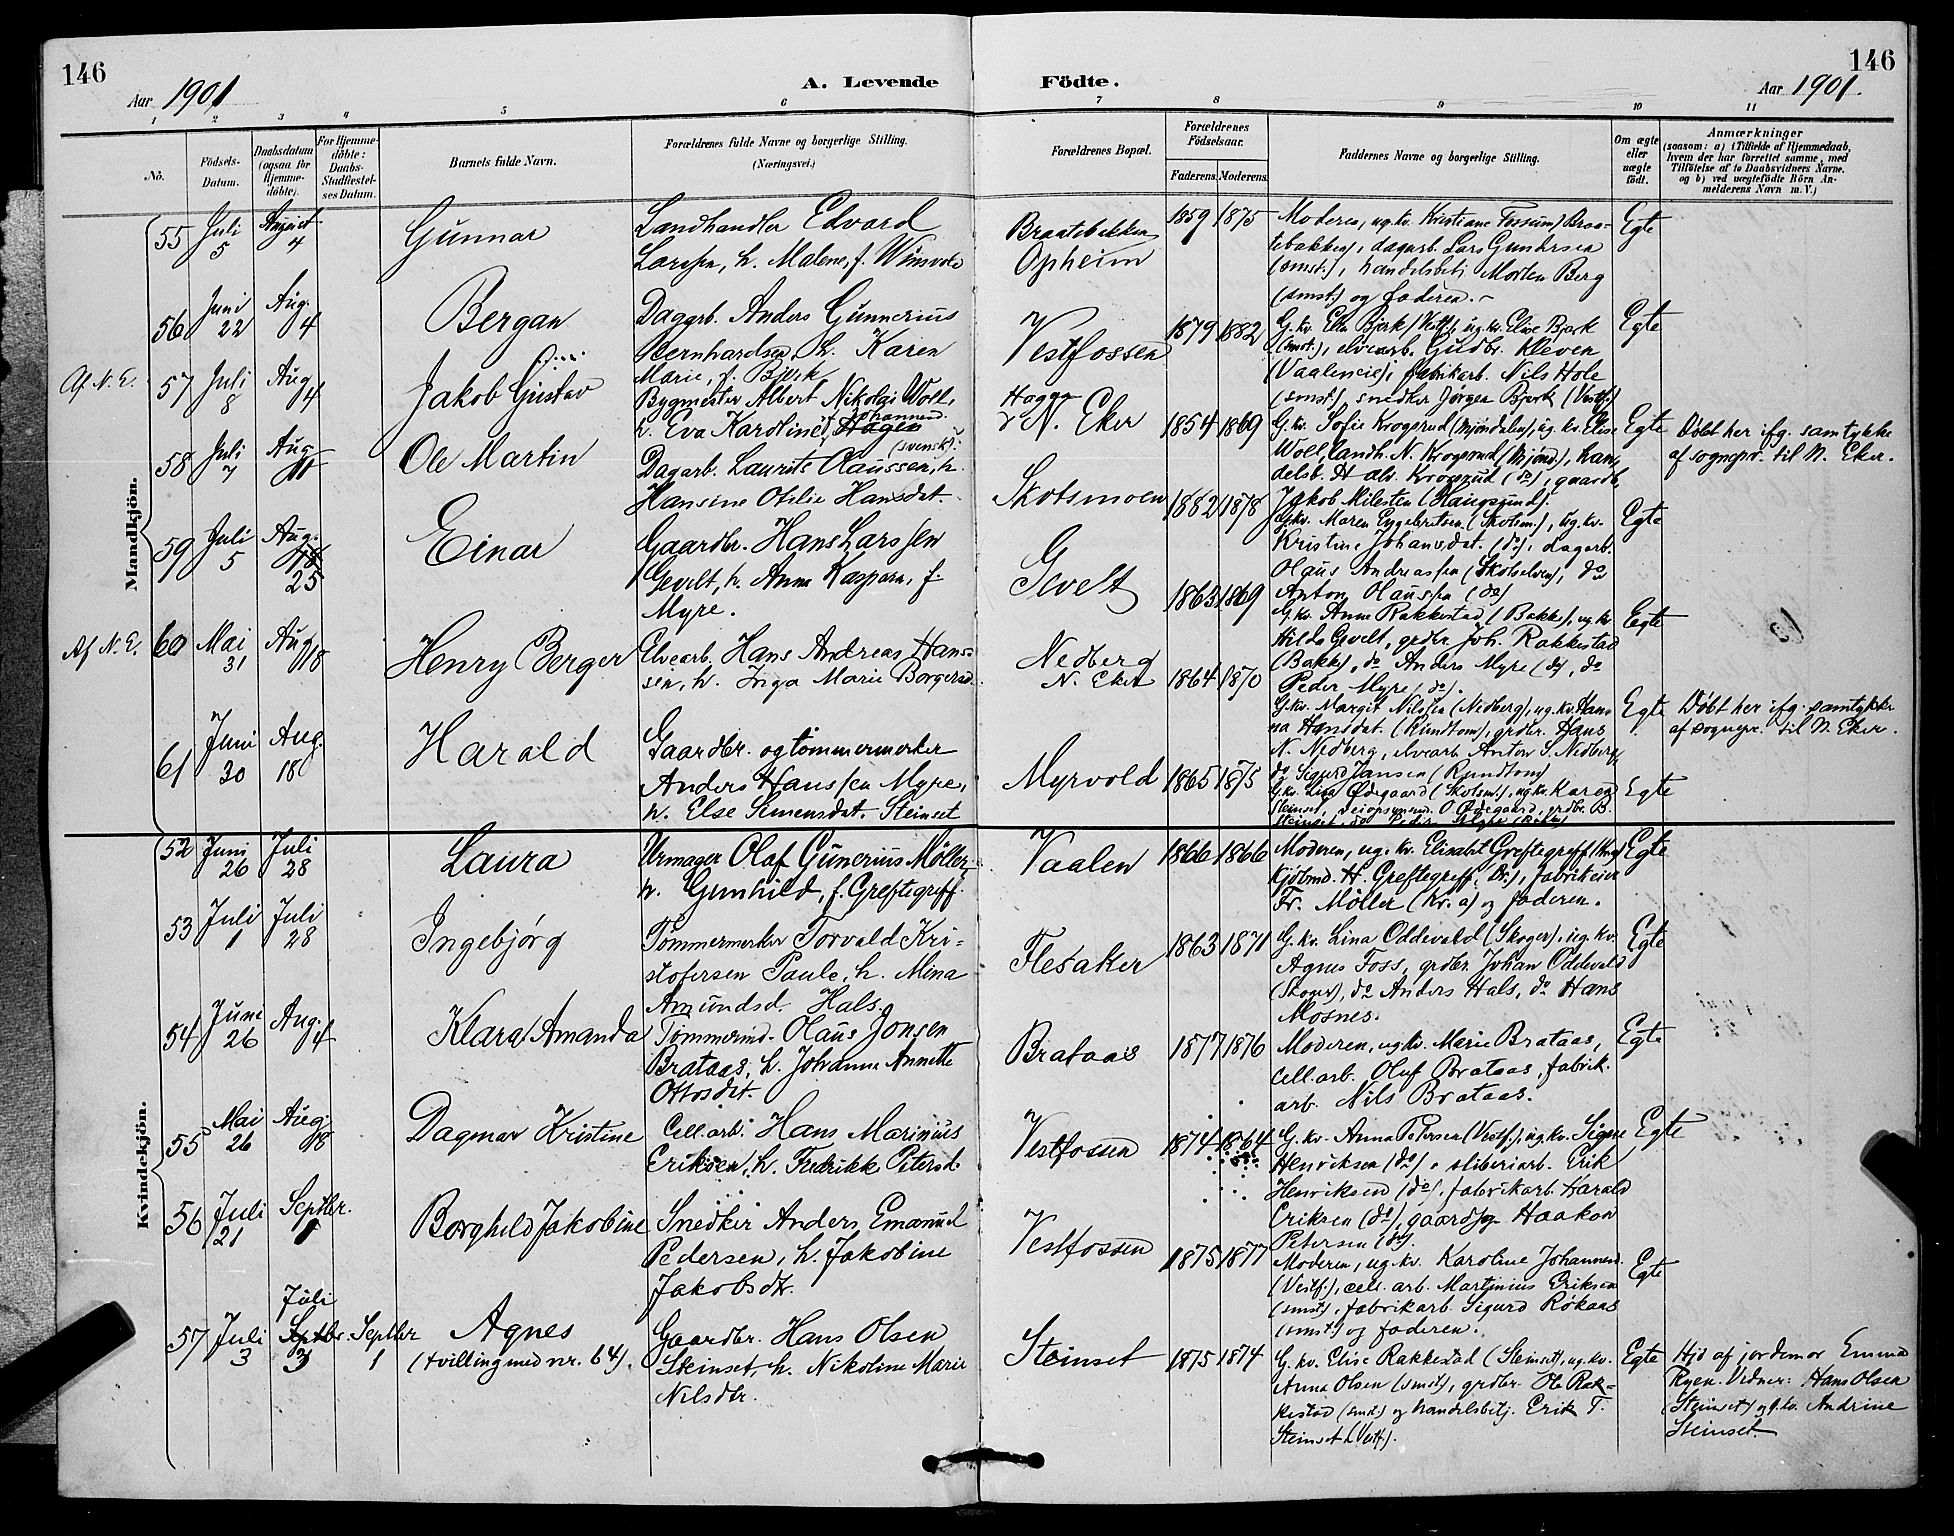 146
Aar 1901
A. Levende
Födte.
Aar 1901.
146
1 2 3 4 5 6 7 8 9 10 11
No.
Födsels-Datum.
Daabsdatum (ogsaa for Hjemme-döbte).
For Hjemme-döbte: Daabs-Stadfæstel-ses Datum.
Barnets fulde Navn.
Forældrenes fulde Navne og borgerlige Stilling.
(Næringsvei.)
Forældrenes Bopæl.
Forældrenes Födselsaar.
Faderens. Moderens.
Faddernes Navne og borgerlige Stilling.
Om ægte eller uægte födt.
Anmærkninger
(saasom: a) i Tilfælde af Hjemmedaab,
hvem der har forrettet samme, med
Tilföielse af to Daabsvidners Navne.
og b) ved uægtefödte Börn An-
melderens Navn m. V.)
Mandkjön.
55 Juli 5 August 4
Gunnar
Landhandler Edvard
Larssen, h. Malene, f. Winsvold
Braatebakken
Opheim
1859 1875
Moderen, ug. kv. Kristiane Fossum, Braa-
tebakken, dagarb. Lars Gundersen
(smst.), handelsbetj. Morten Berg
(smst.) og faderen.
Egte
56 Juni 22 Aug. 4
Bergan
Dagarb. Anders Gunnerius
Bernhardsen, h. Karen
Marie, f. Bjørk
Vestfossen
1879 1882
G. kv. Elen Bjørk (Vestf.), ug. kv. Elise Bjørk
(smst.), elvearb. Gudbr. Kleven
(Vaaleneie), fabrikarb. Nils Hole
(smst.), snedker Jørgen Bjørk (Vestf.)
Egte
Af N. E. 57 Juli 8 Aug 4
Jakob Gustav
Bygmester Albert Nikolai Woll,
h. Eva Karoline, f. Johannesd.
Hagen (svensk).
Hagge
N. Eker
1854 1869
G. kv. Sofie Krogerud (Mjøndalen), ug. kv. Elise
Woll, landh. N. Krogerud (Mjønd.), han-
delsb. Halv. Krogrud (do), gaardb.
Jakob Milesten (Haugsund).
Egte
Døbt her ifg. samtykke
af sognepr. til N. Eker.
58 Juli 7 Aug 11
Ole Martin
Dagarb. Laurits Claussen, h.
Hansine Otilie Hansdat.
Skotsmoen
1882 1878
G. kv. Maren Engebretsen (Skotsm.), ug. kv.
Kristine Johansdat. (do), dagarb.
Olaus Andreassen (Skotselven), do
Anton Olaussen (do)
Egte
59 Juli 5 Aug. 18 25
Einar
Gaardbr. Hans Larssen
Gevelt, h. Anna Kaspara, f.
Myre.
Gevelt
1863 1869
G. kv. Anne Rakkestad (Bakke), ug. kv
Hilda Gevelt, grdbr. Joh. Rakkestad
(Bakke), do Anders Myre (do), do
Peder Myre (do).
Egte
Af N. E. 60 Mai 31 Aug 18
Henry Berger
Elvearb. Hans Andreas Han-
sen, h. Inga Marie Borgersd.
Nedberg
N. Eker
1864 1870
G. kv. Margit Nilssen (Nedberg), ug. kv. Han-
na Hansdat. (Rundtom), grdbr. Hans
N. Nedberg, elvearb. Anton S. Nedberg,
do Sigurd Jansen (Rundtom)
Egte
Døbt her ifg. samtykke
af sognepr. til N. Eker.
61 Juni 30 Aug. 18
Harald
Gaardbr. og tømmermerker
Anders Hanssen Myre,
h. Else Simensdat. Steinset
Myrvold
1865 1875
G. kv. Lina Ødegaard (Skotsm.), ug. kv. Karen
Steinset, O. Ødegaard, grdbr. B.
Steinset, do Peder Myhre
Egte
Kvindekjön.
52 Juni 26 Juli 28
Laura
Urmager Olaf Gunerius Møller,
h. Gunhild, f. Greftegreff.
Vaalen
1866 1866
Moderen, ug. kv. Elisabet Greftegreff
kjøbmd. H. Greftegreff, (Dr.), fabrikeier
Fr. Möller (Kr.a) og faderen.
Egte
53 Juli 1 Juli 28
Ingebjørg
Tømmermerker Torvald Kri-
stofersen Paule, h. Mina
Amundsd. Hals.
Flesaker
1863 1871
G. kv. Lina Oddevald (Skoger), ug. kv.
Agnes Foss, grdbr. Johan Oddevald
(Skoger), do Anders Hals, do Hans
Mosnes.
Egte
54 Juni 26 Aug. 4
Klara Amanda
Tømmermd. Olaus Jonsen
Brataas, h. Johanne Annette
Ottosdat.
Brataas
1877 1876
Moderen, ug. kv. Marie Brataas,
cell. arb. Oluf Brataas, fabrik.
arb. Nils Brataas.
Egte
55 Mai 26 Aug. 18
Dagmar Kristine
Cell. arb. Hans Marinius
Eriksen, h. Fredrikke Petersd.
Vestfossen
1874 1864
G. kv. Anna Petersen (Vestf.), ug. kv. Signe
Henriksen (do), sliberiarb. Erik
Henriksen (do), fabrikarb. Harald
Eriksen (do), gaardsg. Haakon
Petersen (do).
Egte
56 Juli 21 Septbr. 1
Borghild Jakobine
Snedker Anders Emanuel
Pedersen, h. Jakobine
Jakobsdtr.
Vestfossen
1875 1877
Moderen, ug. kv. Karoline Johannesd.
(Vestf.), cell. arb. Martinius Eriksen
(smst), fabrikarb. Sigurd Røkaas
(smst) og faderen.
Egte
57 Juli 3 Juli Septbr. 3 Septbr 1
Agnes
(tvilling med nr. 64).
Gaardbr. Hans Olsen
Steinset, h. Nikoline Marie
Nilsdtr.
Steinset
1875 1874
G. kv. Elise Rakkestad (Steinset), ug. kv.
Anna Olsen (smst), grdbr. Ole Rak-
kestad (smst) og handelsbetj. Erik T.
Steinset (Vestf).
Egte
Hjd af jordemor Emma
Ryen. Vidner: Hans Olsen
(Steinset) og g. kv. Andrine
Steinset.